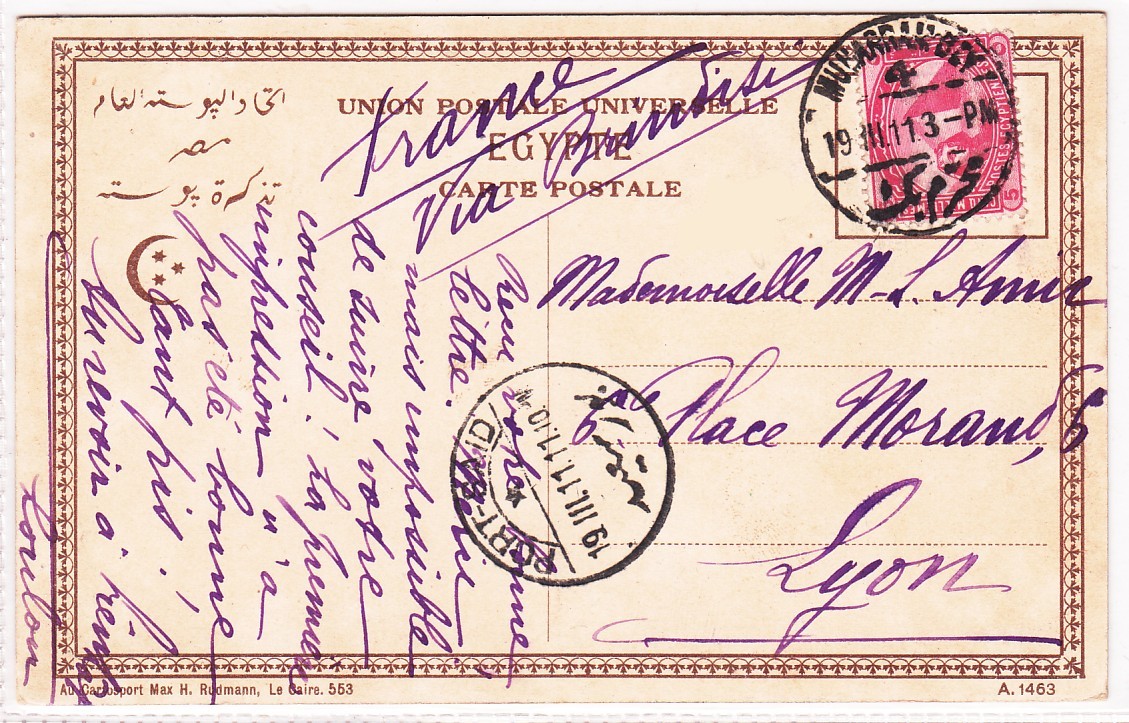 اتحاد البوسته العام
مصر
تذكرة بوسته
UNION POSTALE UNIVERSELLE
EGYPTE
CARTE POSTALE
France
Via Brindisi
MOHARRAM BEY
19 III.11 3-PM
POSTES EGYPTIENNES
5
Mademoiselle M-L. Amic
6 Place Morand, 6
Lyon
PORT-SAID
19 III.11 11
Reçu votre bonne
lettre. Merci,
mais impossible
de suivre votre
conseil, la première
impression n'a
pas été bonne
tant pis,
Au revoir à
Toulon
Au Cartosport Max H. Rudmann, Le Caire. 553
A. 1463